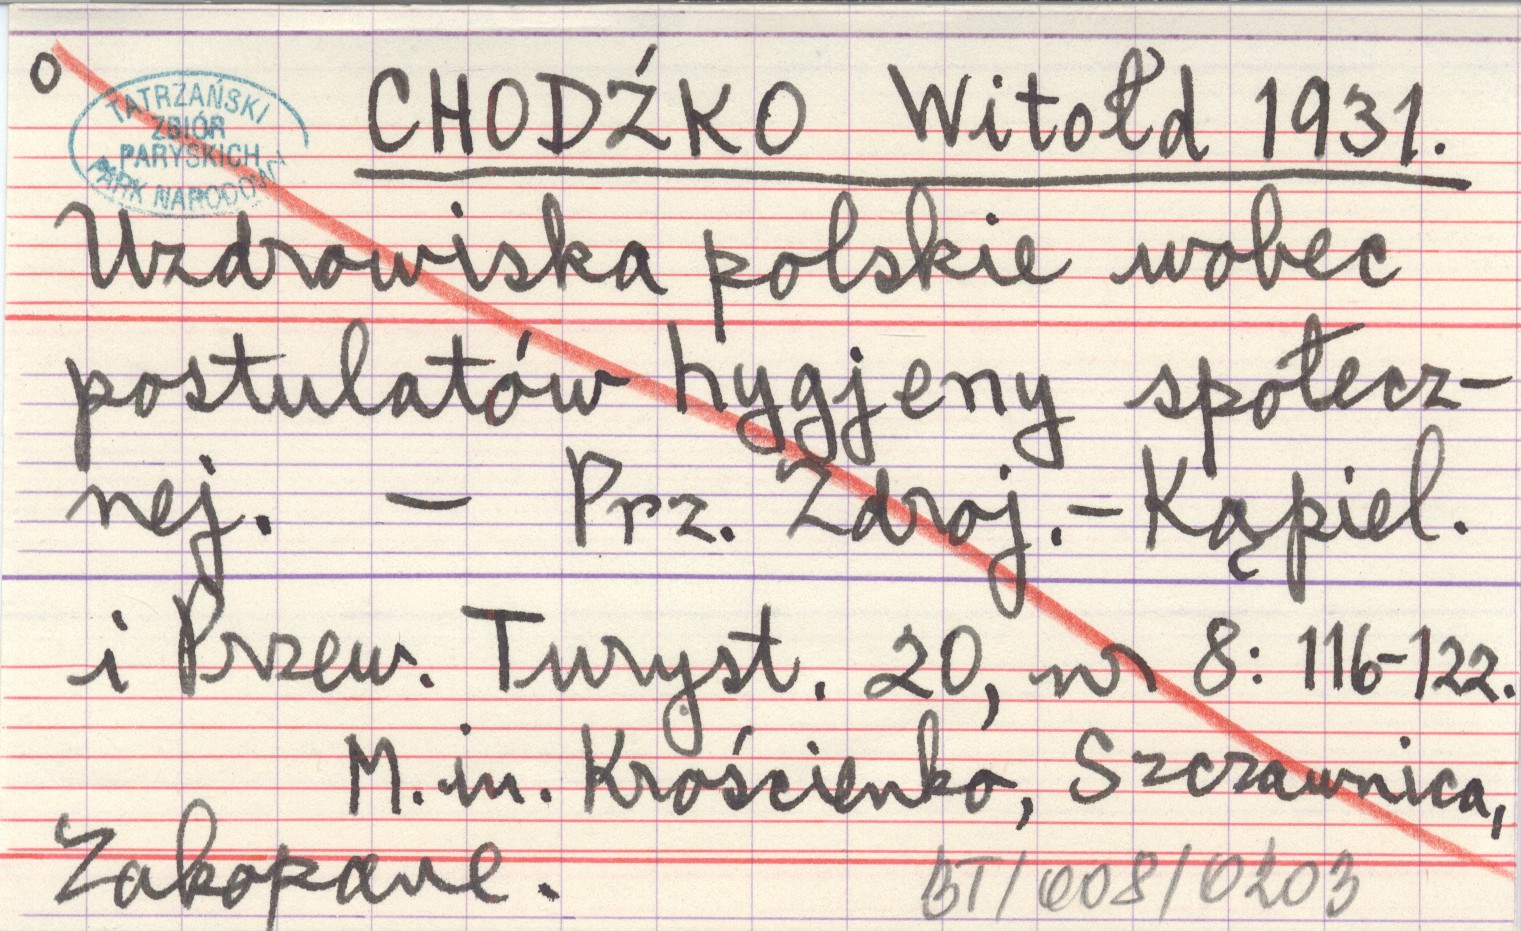 o
TATRZAŃSKI
ZBIÓR
PARYSKICH
PARK NARODOWY
CHODŹKO Witołd 1931.
Uzdrowiska polskie wobec
postulatów hygjeny społecz-
nej. — Prz. Zdroj.-Kąpiel.
i Przew. Turyst. 20, nr 8: 116-122.
M. in. Krościenko, Szczawnica,
Zakopane.
BT/008/0203